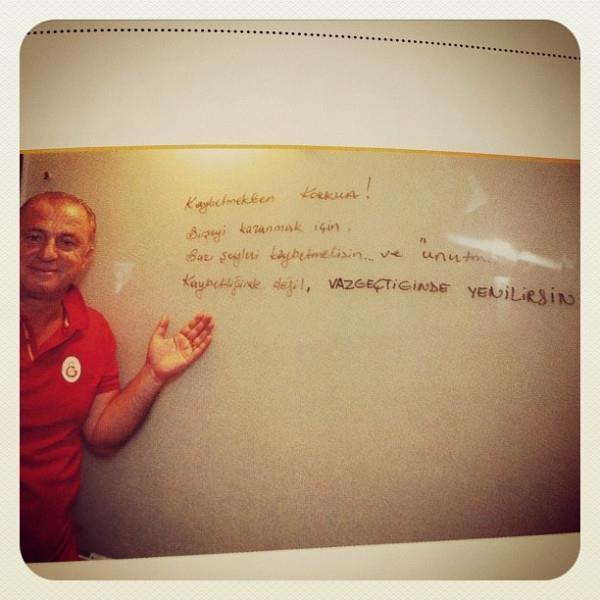 Kaybetmekten KORKMA!
Birşeyi kazanmak için,
Bazı şeyleri kaybetmelisin... ve "ünutm
Kaybettiğinde değil, VAZGEÇTİGİNDE YENİLİRSİN